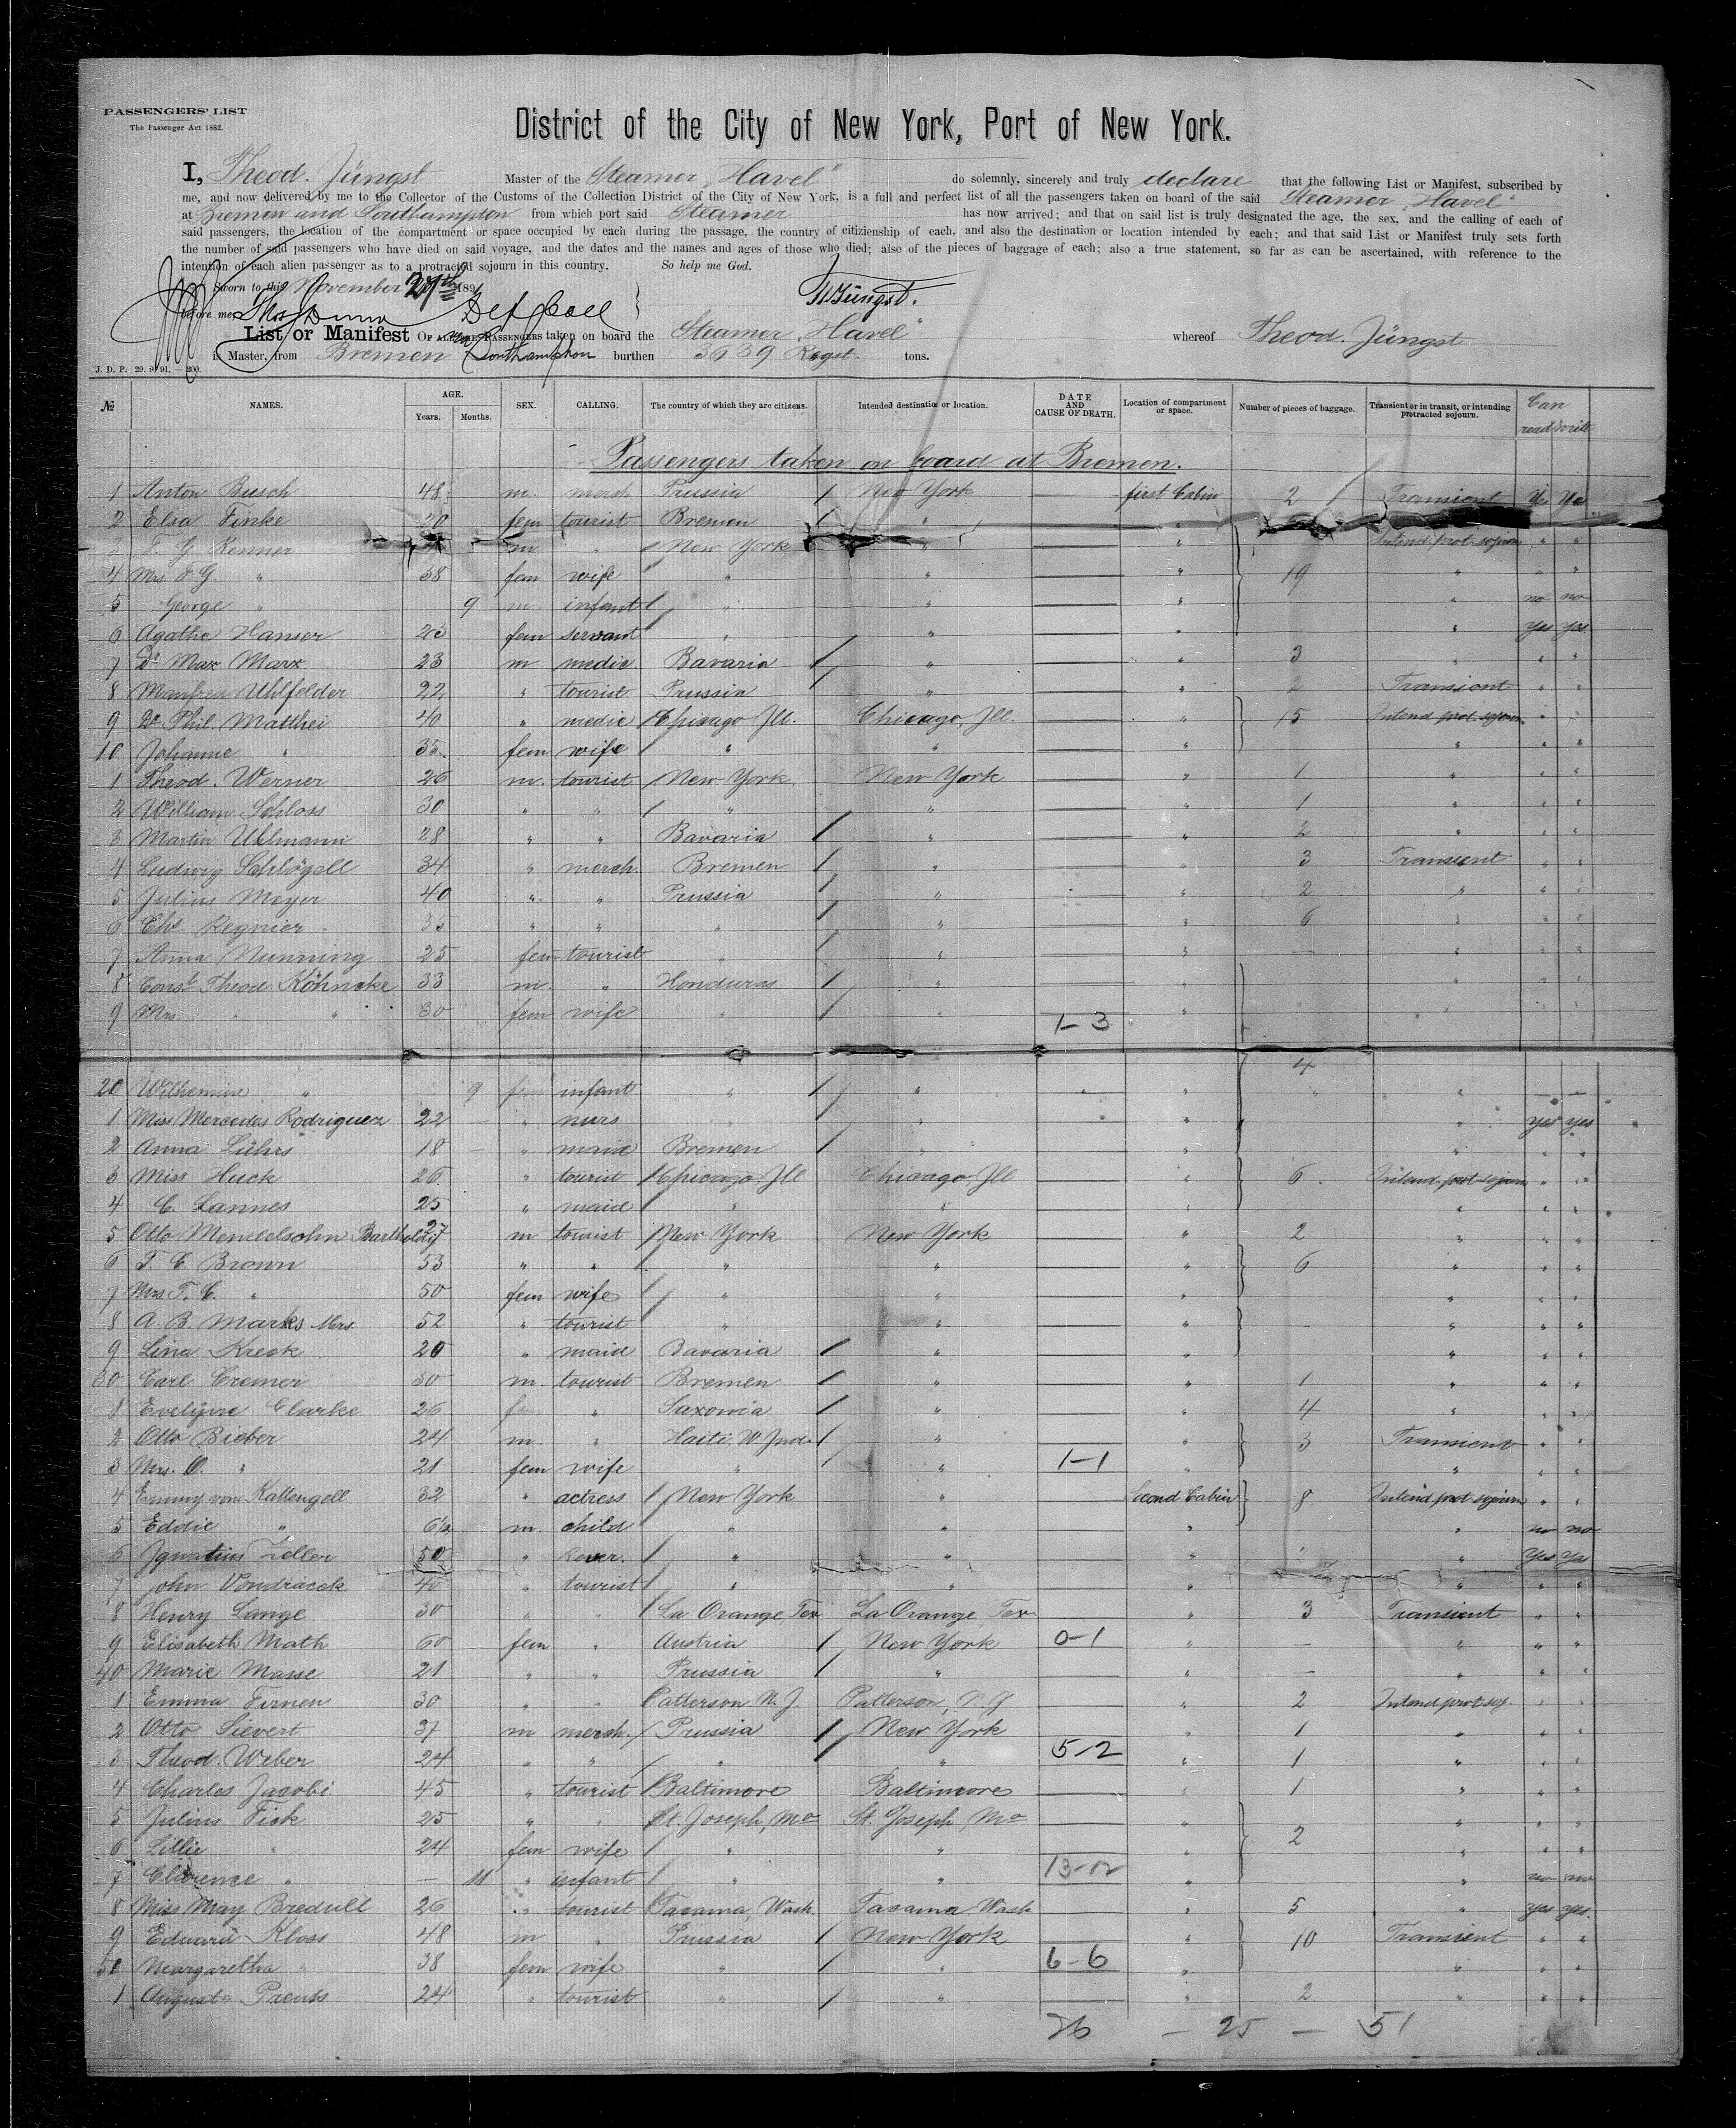 PASSENGERS' LIST
The Passenger Act 1882.
District of the City of New York, Port of New York.
I, Theod. Jüngst Master of the Steamer „Havel" do solemnly, sincerely and truly declare that the following List or Manifest, subscribed by
me, and now delivered by me to the Collector of the Customs of the Collection District of the City of New York, is a full and perfect list of all the passengers taken on board of the said Steamer „Havel"
at Bremen and Southampton from which port said Steamer has now arrived; and that on said list is truly designated the age, the sex, and the calling of each of
said passengers, the location of the compartment or space occupied by each during the passage, the country of citizienship of each, and also the destination or location intended by each; and that said List or Manifest truly sets forth
the number of said passengers who have died on said voyage, and the dates and the names and ages of those who died; also of the pieces of baggage of each; also a true statement, so far as can be ascertained, with reference to the
intention of each alien passenger as to a protracted sojourn in this country. So help me God.
Sworn to this November 27th 189
before me Jüngst.
List or Manifest OF ALL THE PASSENGERS taken on board the Steamer „Havel" whereof Theod. Jüngst
is Master, from Bremen Southampton burthen 3639 Regst. tons.
J. D. P. 29. 9. 91. — 200.
№ NAMES. AGE. Years. Months. SEX. CALLING. The country of which they are citizens. Intended destination or location. DATE AND CAUSE OF DEATH. Location of compartment or space. Number of pieces of baggage. Transient or in transit, or intending protracted sojourn. Can read write
Passengers taken on board at Bremen.
1 Anton Busch 48 m. merch Prussia New York first Cabin 2 Transient Yes Yes
2 Elsa Finke 20 fem tourist Bremen " "
3 F. G. Renner m " New York " " Intend. prot. sojourn " "
4 Mrs. F. G. " 38 fem wife " " " 19 " " "
5 George " 9 m. infant " " " " no no
6 Agathe Hanser 23 fem servant " " " " yes yes
7 Dr Max Marx 23 m medic Bavaria " " 3 " " "
8 Manfred Uhlfelder 22 " tourist Prussia " " 2 Transient " "
9 Dr. Phil. Matthei 40 " medic Chicago Ill. Chicago, Ill. " 15 Intend prot. sojourn " "
10 Johanne " 35 fem wife " " " " " "
1 Theod. Werner 26 m. tourist New York New York " 1 " " "
2 William Schloss 30 " " " " " 1 " " "
3 Martin Uhlmann 28 " " Bavaria " " 2 " " "
4 Ludwig Schlögell 34 " merch. Bremen " " 3 Transient " "
5 Julius Meyer 40 " " Prussia " " 2 " " "
6 Chs. Regnier 35 " " " " " 6 " " "
7 Anna Nunning 25 fem tourist " " " — " " "
8 Consl. Theod. Köhncke 33 m. " Honduras " " " " "
9 Mrs. " " 30 fem wife " " 1-3 " " " "
4
20 Wilhemine " 9 fem infant " " " " — —
1 Miss Mercedes Rodriguez 22 — " nurs " " " " yes yes
2 Anna Lührs 18 — " maid Bremen " " " " "
3 Miss Huck 26 " tourist Chicago, Ill Chicago, Ill " 6 Intend. prot. sojourn " "
4 C. Lannes 25 " maid " " " " " "
5 Otto Mendelsohn Bartholdy 27 m tourist New York New York " 2 " " "
6 F. C. Brown 53 " " " " " 6 " " "
7 Mrs. F. C. " 50 fem wife " " " " " "
8 A. B. Marks Mrs. 52 " tourist " " " — " " "
9 Lina Kreck 20 " maid Bavaria " " " " "
30 Carl Cremer 30 m. tourist Bremen " " 1 " " "
1 Evelyne Clarke 26 fem " Saxonia " " 4 " " "
2 Otto Bieber 24 m. " Haiti, W. Ind. " " 3 Transient " "
3 Mrs. O. " 21 fem wife " " 1-1 " " " "
4 Emmy von Kattengell 32 " actress New York " Second Cabin 8 Intend prot sojourn " "
5 Eddie " 6½ m. child " " " " no no
6 Ignatius Zeller 50 " Rever. " " " 2 " Yes Yes
7 John Vondracek 40 " tourist " " " " " "
8 Henry Lange 30 " " La Orange, Tex La Orange, Tex " 3 Transient " "
9 Elisabeth Math 60 fem " Austria New York 0-1 " — " " "
40 Marie Masse 21 " " Prussia " " — " " "
1 Emma Firnen 30 " " Patterson N. J. Patterson, N. J " 2 Intend prot soj. " "
2 Otto Sievert 37 m merch. Prussia New York " 1 " " "
3 Theod. Weber 24 " " " " 5-2 " 1 " " "
4 Charles Jacobi 45 " tourist Baltimore Baltimore " 1 " " "
5 Julius Fick 25 " " St. Joseph, Mo St. Joseph, Mo " 2 " " "
6 Lillie " 24 fem wife " " " " " "
7 Clarence " — 11 " infant " " 13-12 " " no no
8 Miss May Bredull 26 " tourist Tacama, Wash. Tacama, Wash " 5 " yes yes.
9 Eduard Kloss 48 m " Prussia New York " 10 Transient " "
50 Margaretha " 38 fem wife " " 6-6 " " " "
1 Augusta Preuss 24 " tourist " " " 2 " " "
26 — 25 — 51